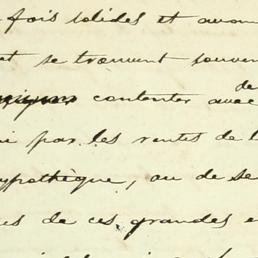 fois solides et
et se trouvent souven
de
contenter avec
par les rentes de l
hypothèque, ou de se
us de ces grandes e